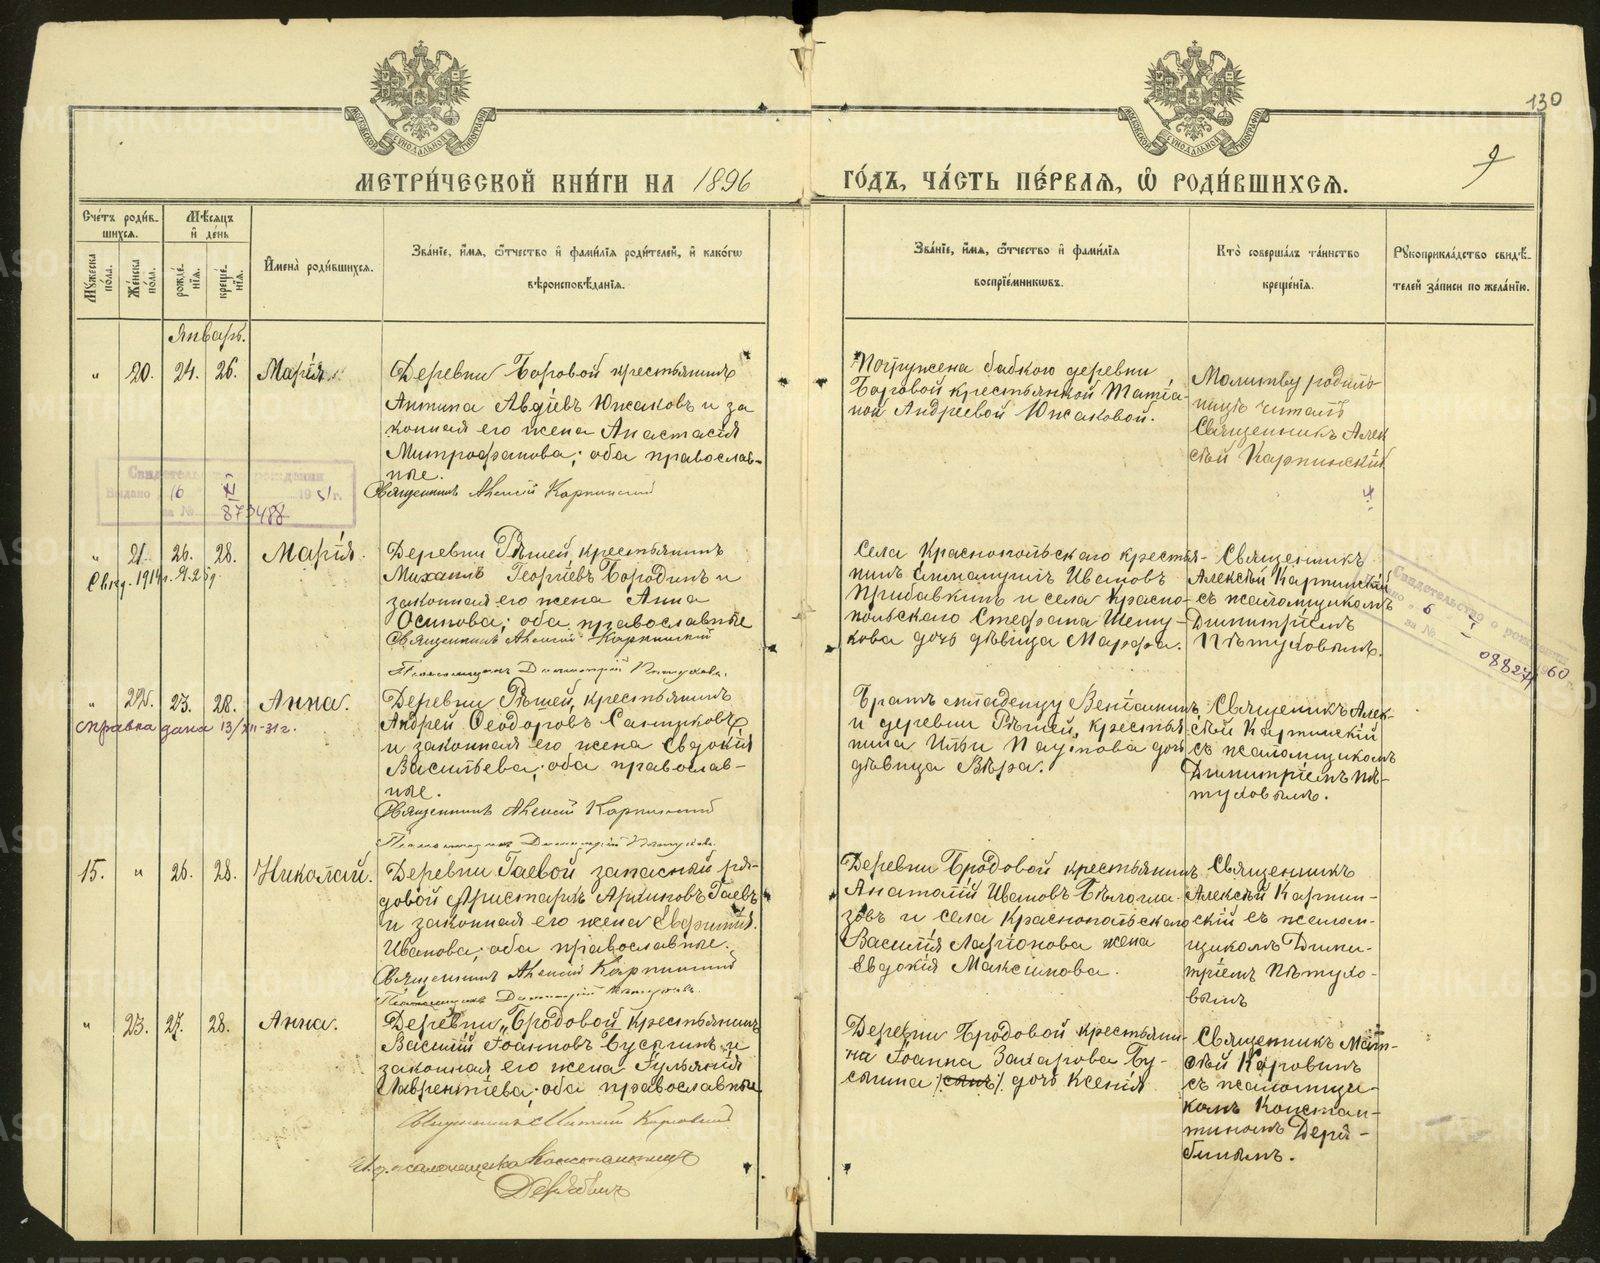 130
9
МЕТРИ́ЧЕСКОЙ КНИ́ГИ НА 1896 ГО́ДЪ, ЧА́СТЬ ПЕ́РВАЯ, Ѡ РОДИ́ВШИХСЯ.
Сче́тъ роди́в-
шихся.
Мѣ́сяцъ
и де́нь
Му́жеска по́ла.
Же́нска по́ла.
рожде́-
нія.
креще́-
нія.
Имена̀ роди́вшихся.
Зва́ніе, и́мя, ѻ́тчество и фами́лія роди́телей, и како́гѡ
вѣроисповѣ́данія.
Зва́ніе, и́мя, ѻ́тчество и фами́лія
воспріе́мникѡвъ.
Кто̀ соверша́лъ та́инство
креще́нія.
Рукоприкла́дство свидѣ́-
телей за́писи по жела́нію.
Январь.
" 20. 24. 26. Марія.
Деревни Боровой крестьянинъ
Антипа Авдіевъ Южаковъ и за
конная его жена Анастасія
Митрофанова; оба православ-
ные.
Священникъ Алексій Карпинскій
Погружена бабкою деревни
Боровой крестьянкой Татіа-
ной Андреевой Южаковой.
Молитву родиль-
ницѣ читалъ
Священникъ Алек
сѣй Карпинскій
Свидетельство рождении
Выдано 16 XI 1951 г.
за № 873488
" 21. 26. 28. Марія.
Деревни Рѣшей, крестьянинъ
Михаилъ Георгіевъ Бородинъ и
законная его жена Анна
Осипова; оба православные
Священникъ Алексій Карпинскій
Псаломщикъ Димитрій Пѣтуховъ.
Села Краснопольскаго крестья-
нинъ Иванъ
Прибавкинъ и села Красно-
польскаго Стефана Шешу-
кова дочь дѣвица Марфа.
Священникъ
Алексѣй Карпинскій
съ псаломщикомъ
Димитріемъ
Пѣтуховымъ.
Свидетельство о рождении
6 I
за № 088271 60
" 22. 23. 28. Анна.
справка дана 13/XII-31 г.
Деревни Рѣшей, крестьянинъ
Андрей Ѳеодоровъ Санниковъ
и законная его жена Евдокія
Васильева; оба православ-
ные.
Священникъ Алексій Карпинскій
Псаломщикъ Димитрій Пѣтуховъ.
Братъ младенцу Веніаминъ
и деревни Рѣшей, крестья
нина Ильи Паупова дочь
дѣвица Вѣра.
Священникъ Алек-
сѣй Карпинскій
съ псаломщикомъ
Димитріемъ Пѣ-
туховымъ.
15. " 26. 28. Николай.
Деревни Гаевой запасный ря-
довой Аристархъ Архиповъ Гаевъ
и законная его жена Евфимія
Иванова; оба православные.
Священникъ Алексій Карпинскій
Псаломщикъ Димитрій Пѣтуховъ.
Деревни Бродовой крестьянинъ
Анатолій Ивановъ Бѣлогла-
зовъ и села Краснопольскаго
Василія Ларіонова жена
Евдокія Максимова.
Священникъ
Алексѣй Карпин-
скій съ псалом-
щикомъ Дими-
тріемъ Пѣтухо-
вымъ
" 23. 27. 28. Анна.
Деревни Бродовой крестьянинъ
Василій Іоанновъ Бусыгинъ и
законная его жена Іульянія
Лаврентіева; оба православные
Священникъ Матѳій Коровинъ
И. д. псаломщика Константинъ
Дерябинъ
Деревни Бродовой крестьяни-
на Іоанна Захарова Бу-
сыгина дочь Ксенія
Священникъ Мат-
ѳѣй Коровинъ
съ псаломщи-
комъ Констан-
тиномъ Деря-
бинымъ.